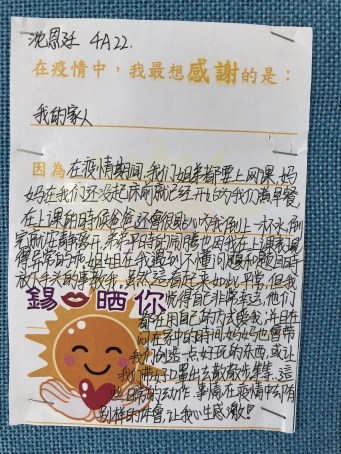 沈恩廷 4A22.
在疫情中，我最想感謝的是：
我的家人
因為在疫情期间,我们姐弟都要上网课,妈
妈在我们还没起床前就已经开始为我们准备早餐,
在上课的时候爸爸还会很贴心为我倒上一杯水,倒
完就
弟弟平时的闹腾也因我在上课表现
得异常的乖,姐姐在我遇到不懂问题和题目时
放下手头的事教我,虽然这看起来如此平常,但我
錫 晒你
觉得自己非常幸运,他们
都在用自己的方式爱我,并且在
在家中的时间妈妈也会带
我们做一点好玩的东西,或让
我们带好口罩出去散散步等等。这
些日常的动作、事情在疫情中却有
别样的体會,让我心生感激!!